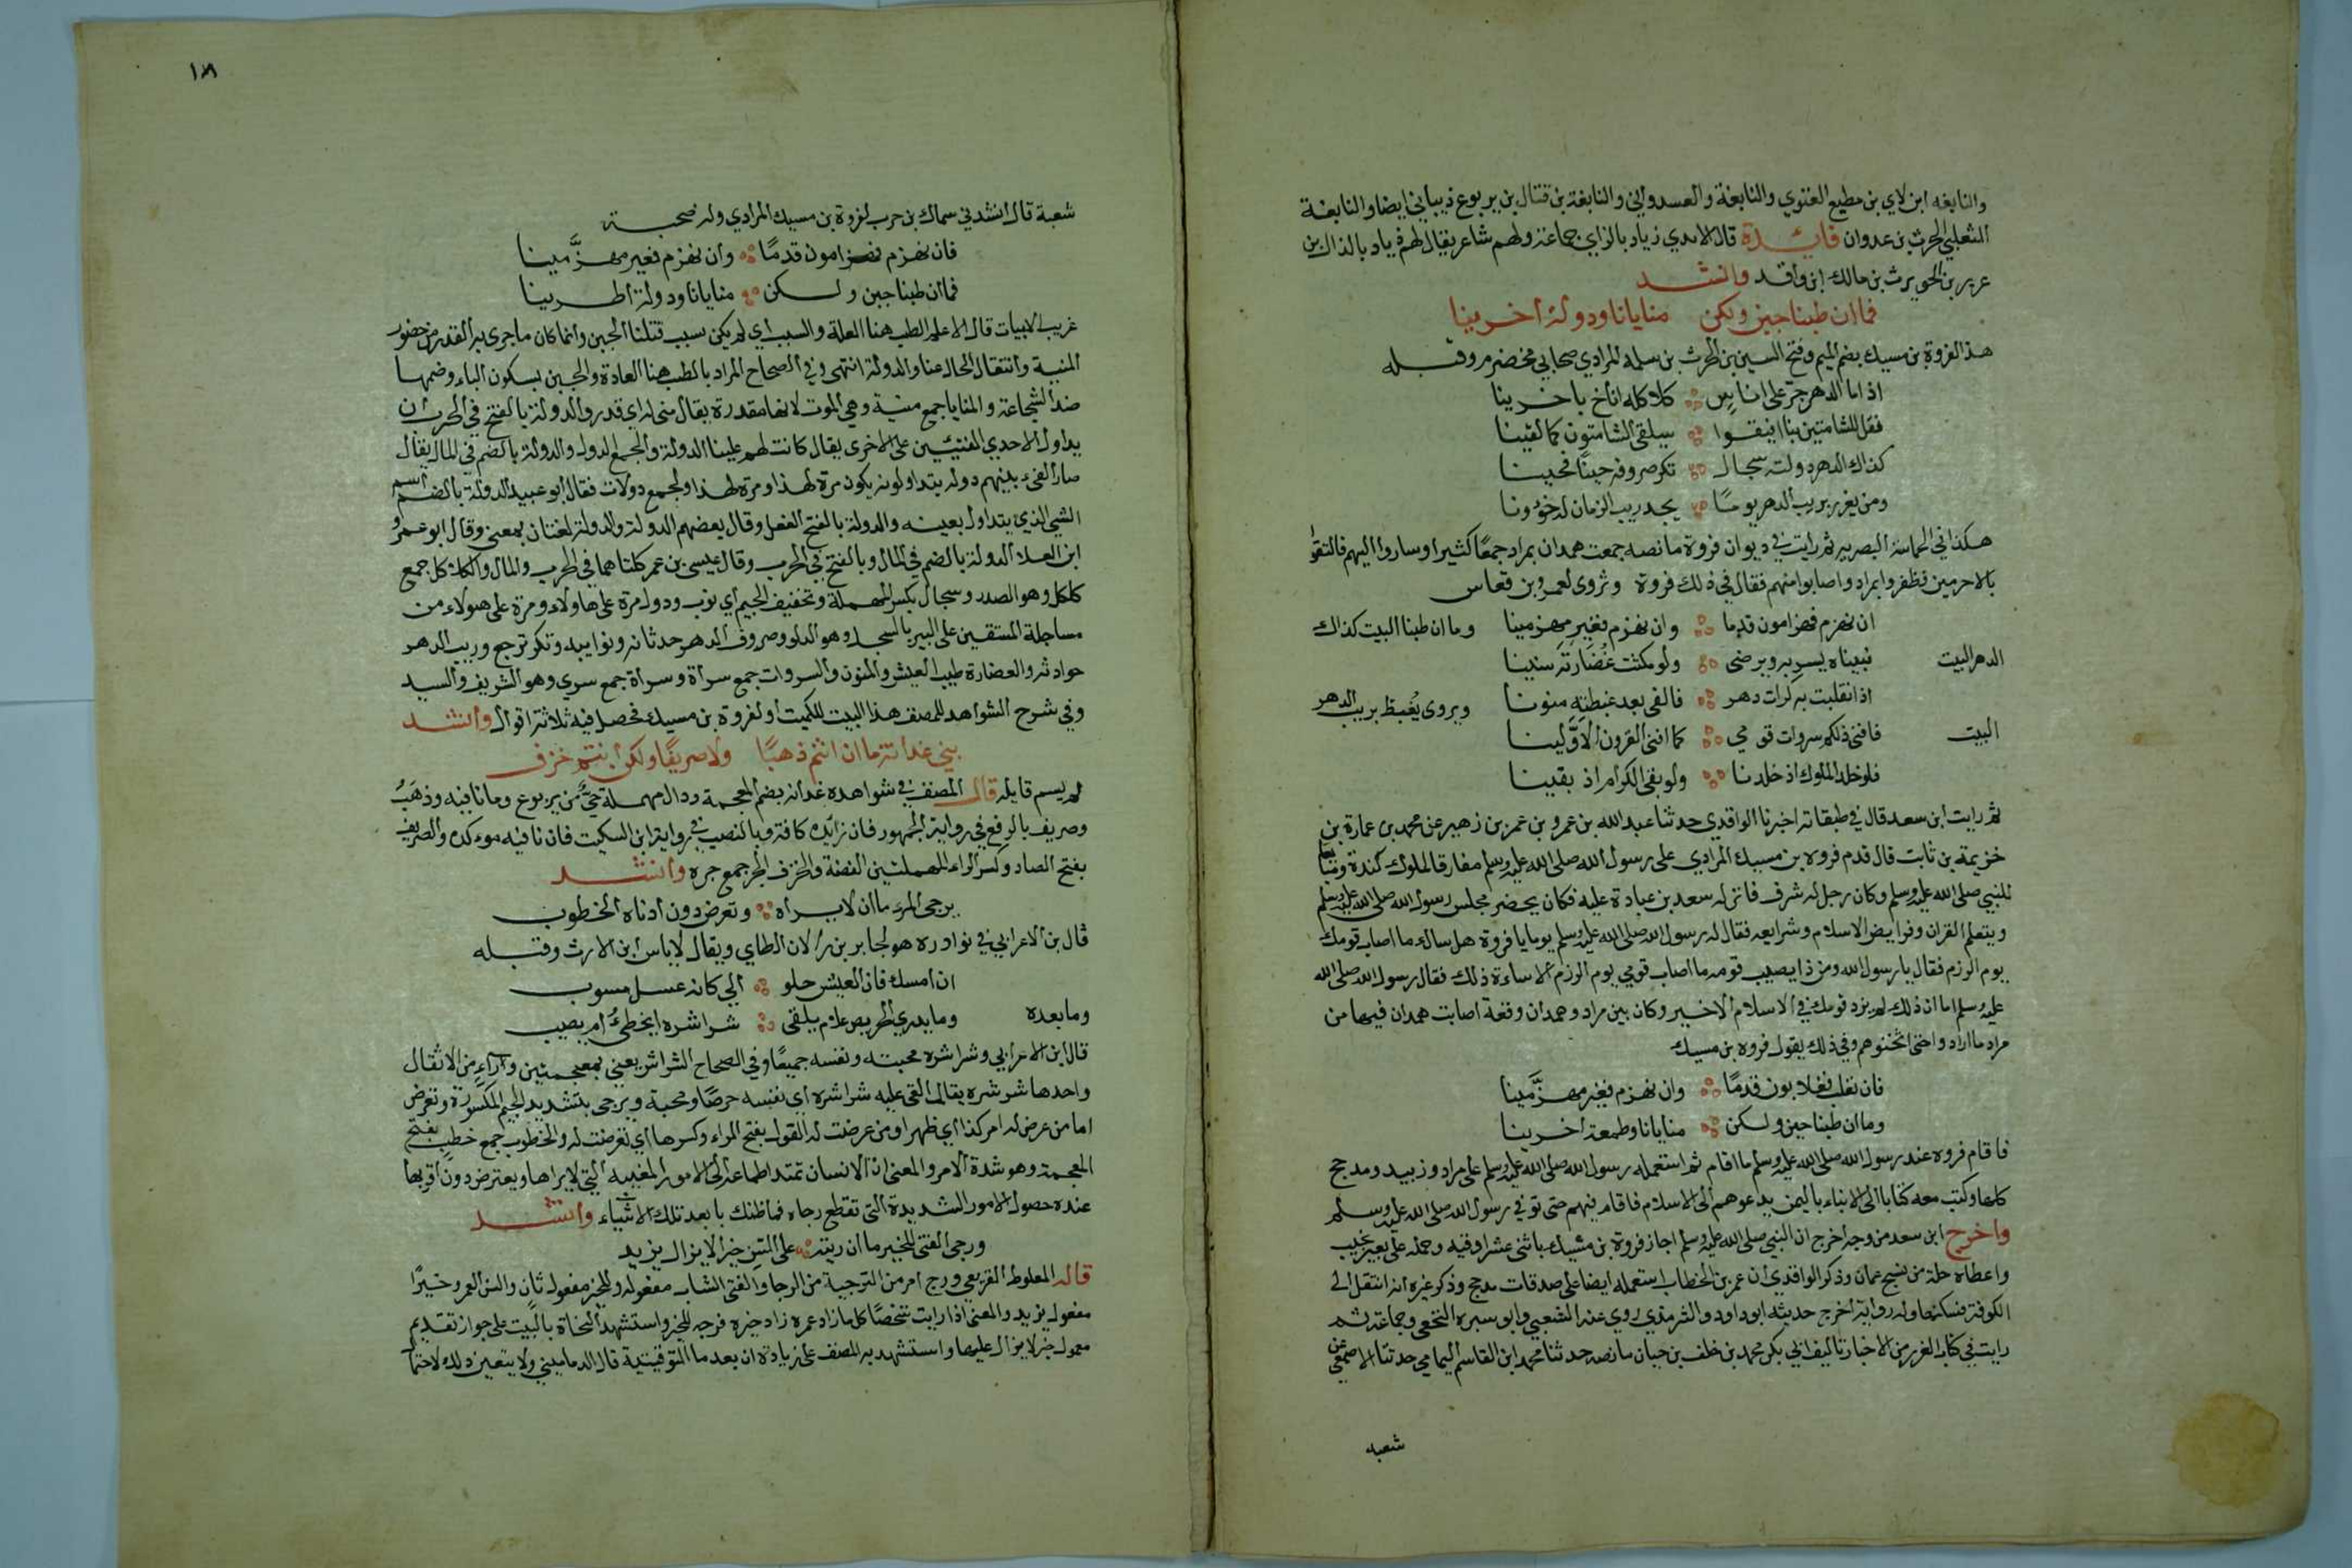 والنابغه ابن لاي بن مطيع الغنوي والنابغة والعسدواني والنابغة بن قتال بن يربوع ذيباني ايضا والنابغة
الثعلبي الحرث بن عدوان فايدة قال الامدي زياد بالزاي جماعة ولهم شاعر يقال لهم ذياد بالذال بن
عرير بن الحويرث بن مالك ابن واقد وانشد
فما ان طبنا جبن ولكن منايانا ودولة اخرينا
هذا لفروة بن مسيك بضم الميم وفتح السين بن الحرث بن سلمة المرادي صحابي مخضرم وقبله
اذا ما الدهر جرّ على اناسٍ كلاكله اناخ باخرينا
فقل للشامتين بنا افيقوا سيلقى الشامتون كما لقينا
كذاك الدهر دولته سجال تكر صروفه حينًا فحينا
ومن يغرر بريب الدهر يومًا يجد ريب الزمان له خؤونا
هكذا في الحماسة البصرية ثم رايت في ديوان فروة ما نصه جمعت همدان بمراد جمعًا كثيرا وساروا اليهم فالتقوا
بالاحرمين فظفروا بمراد واصابوا منهم فقال في ذلك فروة وتروى لعمرو بن قعاس
ان نهزم فهزامون قدما وان نهزم فغير مهزمينا وما ان طبنا البيت كذاك
الدهر البيت فبيناه يسر به ويرضى ولو مكثت غُضَارته سنينا
اذ انقلبت به كرات دهر فالفى بعد غبطته منونا ويروى يُغبط بريب الدهر
البيت فافنى ذلكم سروات قومي كما افنى القرون الاوَّلينا
فلو خلد الملوك اذ خلدنا ولو بقى الكرام اذ بقينا
ثم رايت ابن سعد قال في طبقاته اخبرنا الواقدي حدثنا عبد الله بن عمرو بن عمز بن زهير عن محمد بن عمارة بن
خزيمة بن ثابت قال قدم فروه بن مسيك المرادي على رسول الله صلى الله عليه وسلم مفارقا لملوك كندة
للنبي صلى الله عليه وسلم وكان رجل له شرف فانزله سعد بن عبادة عليه فكان يحضر مجلس رسول الله صلى الله عليه وسلم
ويتعلم القران وفرايض الاسلام وشرايعه فقال له رسول الله صلى الله عليه وسلم يوما يا فروة هل ساءك ما اصاب قومك
يوم الرزم فقال يا رسول الله ومن ذا يصيب قومه ما اصاب قومي يوم الرزم الا ساءة ذلك فقال رسول الله صلى الله
عليه وسلم اما ان ذلك لم يزد قومك في الاسلام الا خير وكان بين مراد وهمدان وقعة اصابت همدان فيها من
مراد ما اراد واحتى اثخنوهم وفي ذلك يقول فروه بن مسيك
فان نغلب فغلابون قدمًا وان نهزم فغير مهزَّمينا
وما ان طبنا جبن ولكن منايانا وطعمة اخرينا
فاقام فروه عند رسول الله صلى الله عليه وسلم ما اقام ثم استعمله رسول الله صلى الله عليه وسلم على مراد وزبيد ومدجج
كلها وكتب معه كتابا الى الابناء باليمن يدعوهم الى الاسلام فاقام فيهم حتى توفي رسول الله صلى الله عليه وسلم
واخرج ابن سعد من وجه اخرج ان النبي صلى الله عليه وسلم اجاز فروة بن مشيك باثنى عشر اوقيه وحمله على بعير نجيب
واعطاه حلة من نسج عمان وذكر الواقدي ان عمر بن الخطاب استعمله ايضا على صدقات مدجج وذكر غيره انه انتقل الى
الكوفة فسكنها وله رواية اخرج حديثه ابو داود والترمذي روى عنه الشعبي وابو سبره النخعي وجماعة ثم
رايت في كتاب الغرر من الاخبار تاليف ابي بكر محمد بن خلف بن حيان ما نصه حدثنا محمد ابن القاسم اليمامي حدثنا الاصمعي عن
شعبه
١٨
شعبة قال انشدني سماك بن حرب لفروة بن مسيك المرادي وله صحبة
فان نهزم فهزامون قدمًا وان نهزم فغير مهزَّمينا
فما ان طبنا جبن ولكن منايانا ودولة اطرينا
غريب الابيات قال الاعلم الطب هنا العلة والسبب اي لم يكن سبب قتلنا الجبن وانما كان ما جرى به القدر من حضور
المنية وانتقال الحال عنا والدولة انتهى وفي الصحاح المراد بالطب هنا العادة والجبن بسكون الباء وضمها
ضد الشجاعة والمنايا جمع منية وهي الموت لانها مقدرة يقال منى له اي قدر والدولة بالفتح في الحرب ان
يداول الاحدي الفئتين على الاخرى يقال كانت لهم علينا الدولة والجمع الدول والدولة بالضم في المال يقال
صار الفيء بينهم دوله يتداولونه يكون مرة لهذا ومرة لهذا والجمع دولات فقال ابو عبيد الدولة بالضم اسم
الشي الذي يتداول بعينه والدولة بالفتح الفعل وقال بعضهم الدولة والدولة لغتان بمعنى وقال ابو عمرو
ابن العلا الدولة بالضم في المال وبالفتح في الحرب وقال عيسى بن عمر كلتاهما في الحرب والمال والكلاكل جمع
كلكل وهو الصدر وسجال بكسر المهملة وتخفيف الجيم اي نوب ودول مرة على هاولاء ومرة على هولاء من
مساجلة المستقين على البير بالسجل وهو الدلو وصروف الدهر حدثانه ونوايبه وتكر ترجع وريب الدهر
حوادثه والغضارة طيب العيش والمنون والسروات جمع سراة وسراة جمع سري وهو الشريف والسيد
وفي شرح الشواهد للمصنف هذا البيت للكميت او لفروة بن مسيك فحصل فيه ثلاثة اقوال وانشد
بني غدانة ما ان انتم ذهبًا ولا صريفًا ولكن انتم خزف
لم يسم قايله قال المصنف في شواهده غدانة بضم المعجمة ودال مهملة حيٌّ من يربوع وما نافيه وذهبُ
وصريف بالرفع في رواية الجمهور فان زايده كافة وبالنصب في رواية ابن السكيت فان نافيه موءكده والصريف
بفتح الصاد وكسر الراء المهملتين الفضة والخزف الجر جمع جره وانشد
يرجى المرء ما ان لا يراه وتعرض دون ادناه الخطوب
قال بن الاعرابي في نوادره هو لجابر بن رالان الطاي ويقال لاياس ابن الارث وقبله
ان امسك فان العيش حلو الي كانه عسل مسوب
وما بعده وما يدري الحريص علام يلقى شراشره ايخطئُ ام يصيب
قال ابن الاعرابي وشراشره محبته ونفسه جميعًا وفي الصحاح الشراشر يعني بمعجمتين وراء من الاثقال
واحدها شرشره يقال القى عليه شراشره اي نفسه حرصًا ومحبة ويرجى بتشديد الجيم المكسورة وتعرض
اما من عرض له امر كذا اي ظهر او من عرضت له القول بفتح الراء وكسرها اي تعرضت له والخطوب جمع خطب بفتح
المعجمة وهو شدة الامر والمعنى ان الانسان تمتد اطماعه الى الامور المغيبه التي لا يراها ويعترض دون اقربها
عنده حصول الامور الشديدة التي تقطع رجاه فما ظنك بابعد تلك الاشياء وانشد
ورجى الفتى للخير ما ان ريته على السّن خيرا لا يزال يزيد
قاله المعلوط القريعي ورج امر من الترجية من الرجا والفتى الشاب مفعوله وللخير مفعول ثان والسن العمر وخيرًا
مفعول يزيد والمعنى اذا رايت شخصًا كلما زاد عمره زاد خيره فرجه للخير واستشهد النحاة بالبيت على جواز تقديم
معمول خبر لا يزال عليها واستشهد به المصنف على زيادة ان بعد ما التوقيتية قال الدماميني ولا يتعين ذلك لاحتما